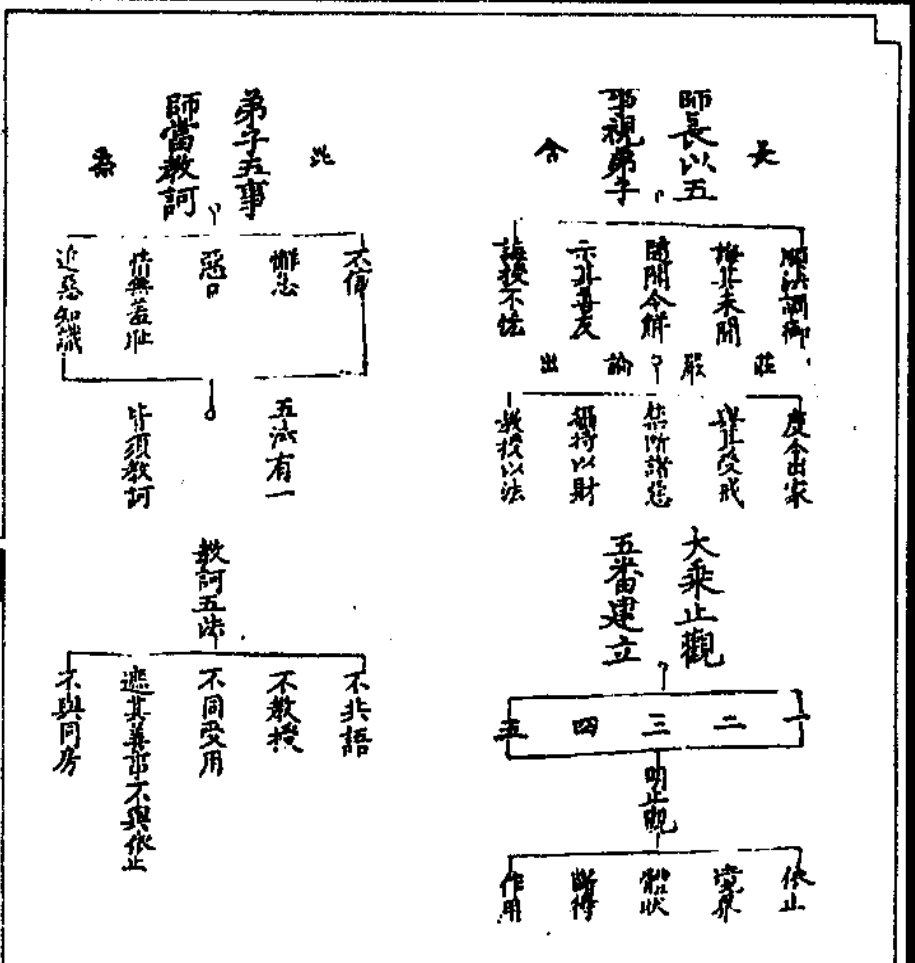 長
師長以五
事視弟子
含
順法調御
誨其未聞
隨聞令解
示其善友
誨授不恡
莊嚴論出
度令出家
與其受戒
禁所諸惡
攝持以財
教授以法
大乘止觀
五番建立
一
二
三
四
五
明止觀
依止
境界
體狀
斷得
作用
弟子五事
師當教訶
柰
不信
懈怠
惡口
情無羞耻
近惡知識
五法有一
皆須教訶
教訶五法
不共語
不教授
不同受用
遮其善事不與依止
不與同房